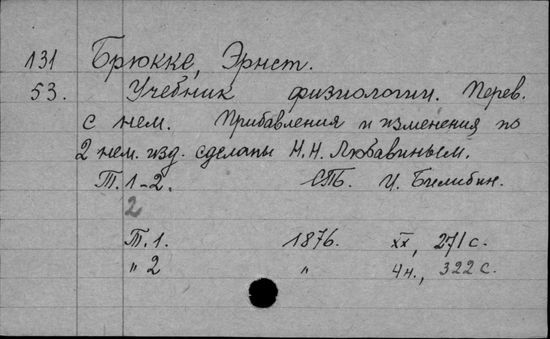 131 Брюкке, Эрнст.
53. Учебник физиологии. Перев.
с нем. Прибавления и изменения по
2 нем. изд. сделаны Н. Н. Любавиным.
Т. 1-2. СПБ. И. Билибин.
2
Т. 1. 1876. XX, 271 с.
" 2 " 4н., 322 с.